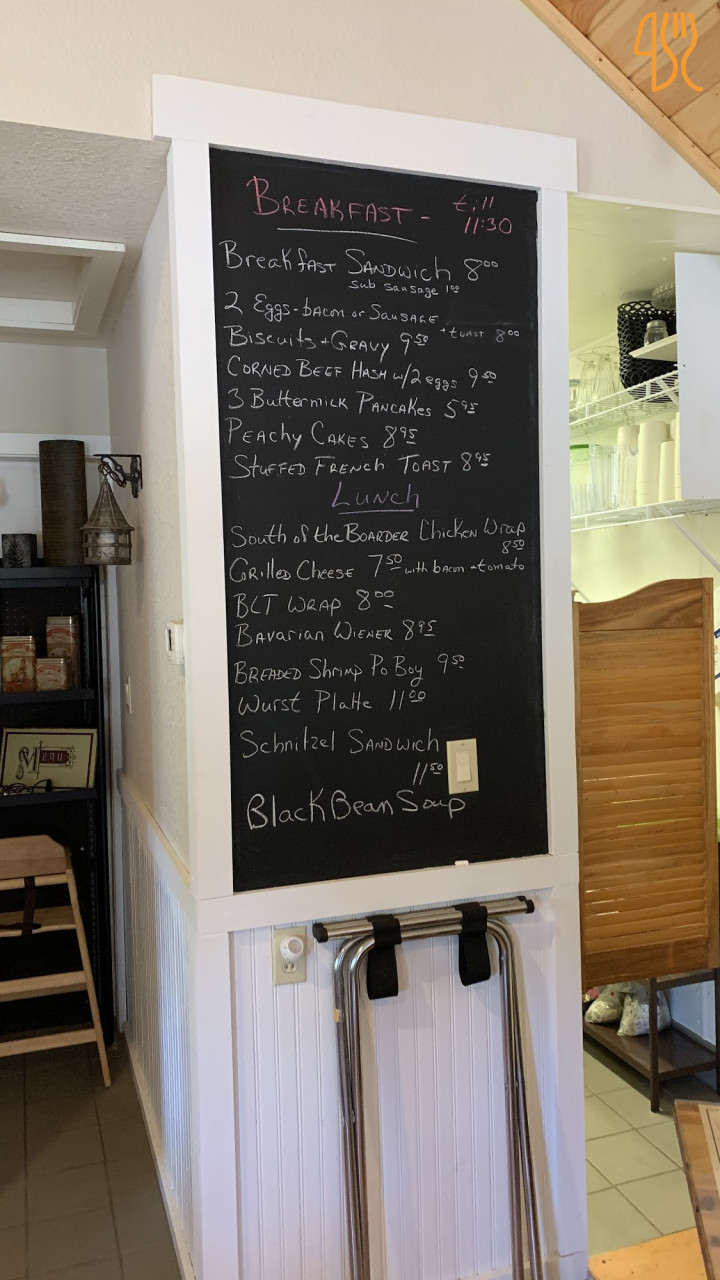 BREAKFAST - till
11:30
Breakfast Sandwich 8⁰⁰
sub sausage 1⁰⁰
2 Eggs-bacon or Sausage
+ toast 8⁰⁰
Biscuits + Gravy 9⁵⁰
Corned Beef Hash w/2 eggs 9⁵⁰
3 Buttermilk Pancakes 5⁹⁵
Peachy Cakes 8⁹⁵
Stuffed French Toast 8⁹⁵
Lunch
South of the Boarder Chicken Wrap
8⁵⁰
Grilled Cheese 7⁵⁰ with bacon + tomato
BLT Wrap 8⁰⁰
Bavarian Wiener 8⁹⁵
Breaded Shrimp Po Boy 9⁵⁰
Wurst Platte 11⁰⁰
Schnitzel Sandwich
11⁵⁰
Black Bean Soup
Menu